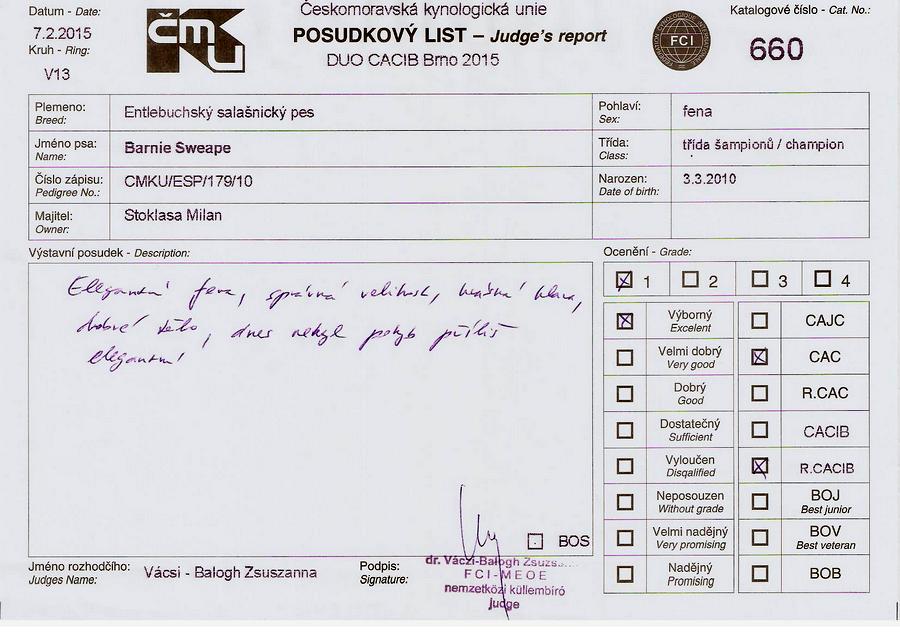 Datum - Date:
7.2.2015
Kruh - Ring:
V13
ČMKU
Českomoravská kynologická unie
POSUDKOVÝ LIST – Judge's report
DUO CACIB Brno 2015
FCI
Katalogové číslo - Cat. No.:
660
Plemeno:
Breed:
Entlebuchský salašnický pes
Pohlaví:
Sex:
fena
Jméno psa:
Name:
Barnie Sweape
Třída:
Class:
třída šampionů / champion
Číslo zápisu:
Pedigree No.:
CMKU/ESP/179/10
Narozen:
Date of birth:
3.3.2010
Majitel:
Owner:
Stoklasa Milan
Výstavní posudek - Description:
Elegantní fena, správná velikost, krásná hlava,
dobré tělo, dnes nebyl pohyb příliš
elegantní
BOS
Ocenění - Grade:
1 2 3 4
Výborný
Excelent
CAJC
Velmi dobrý
Very good
CAC
Dobrý
Good
R.CAC
Dostatečný
Sufficient
CACIB
Vyloučen
Disqalified
R.CACIB
Neposouzen
Without grade
BOJ
Best junior
Velmi nadějný
Very promising
BOV
Best veteran
Nadějný
Promising
BOB
Jméno rozhodčího:
Judges Name:
Vácsi - Balogh Zsuszanna
Podpis:
Signature:
dr. Váczi-Balogh
FCI-MEOE
nemzetközi küllembíró
judge